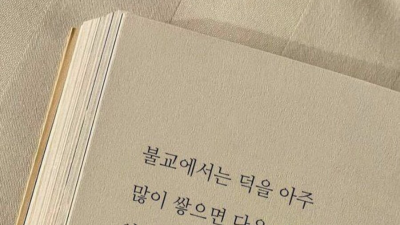 불교에서는 덕을 아주
많이 쌓으면